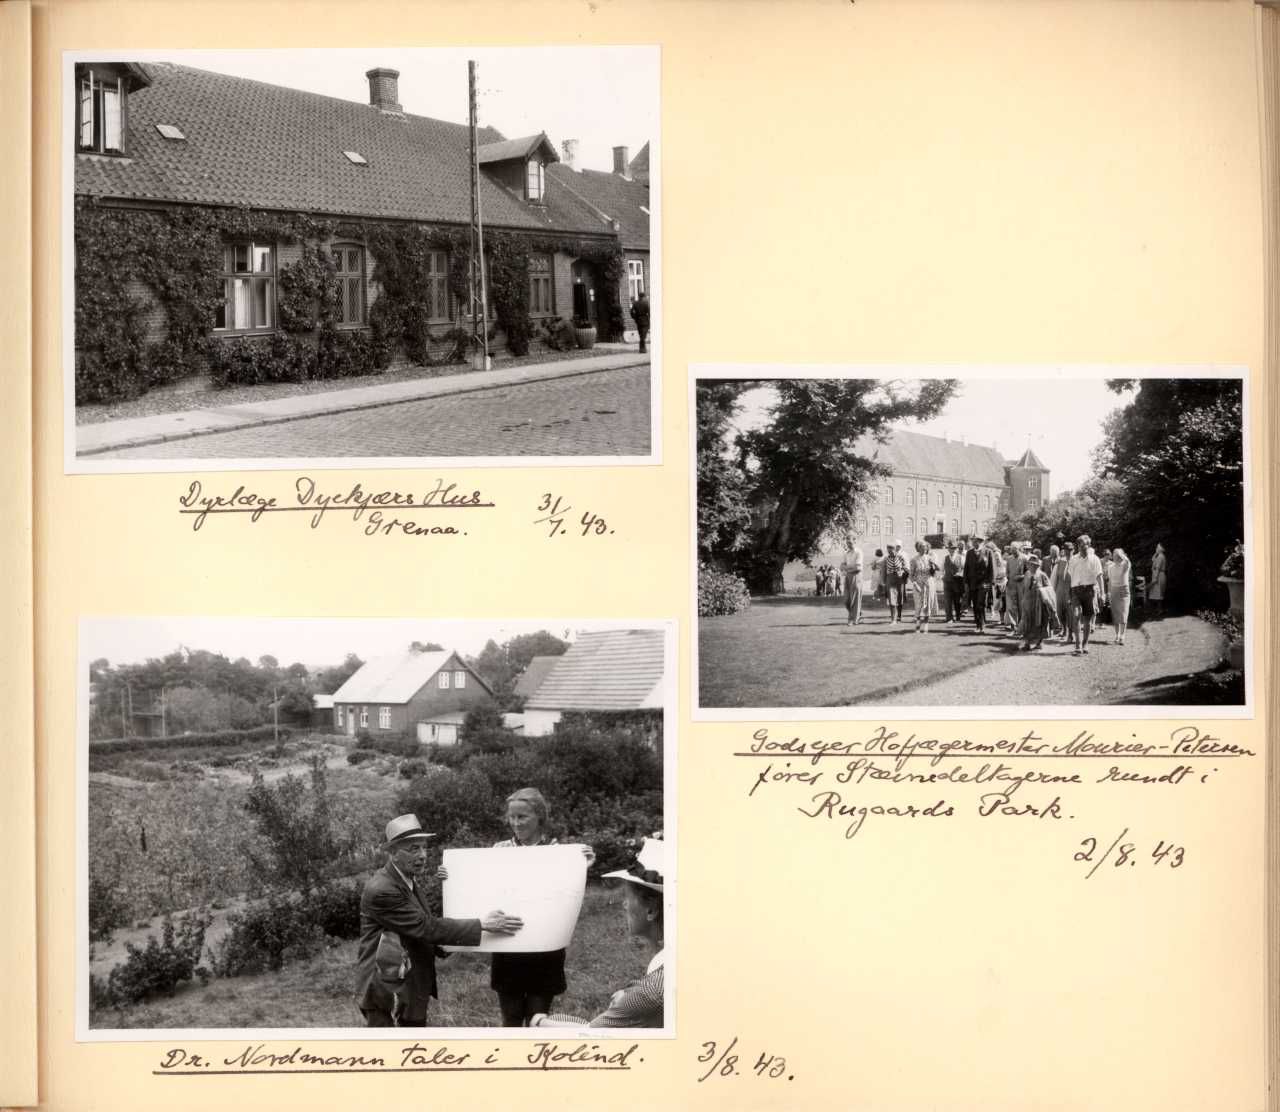 Dyrlæge Dyekjærs Hus.
Grenaa.
31/7. 43.
Godsejer Hofjægermester Mourier-Petersen
fører Stævnedeltagerne rundt i
Rugaards Park.
2/8. 43
Dr. Nordmann taler i Kolind.
3/8. 43.